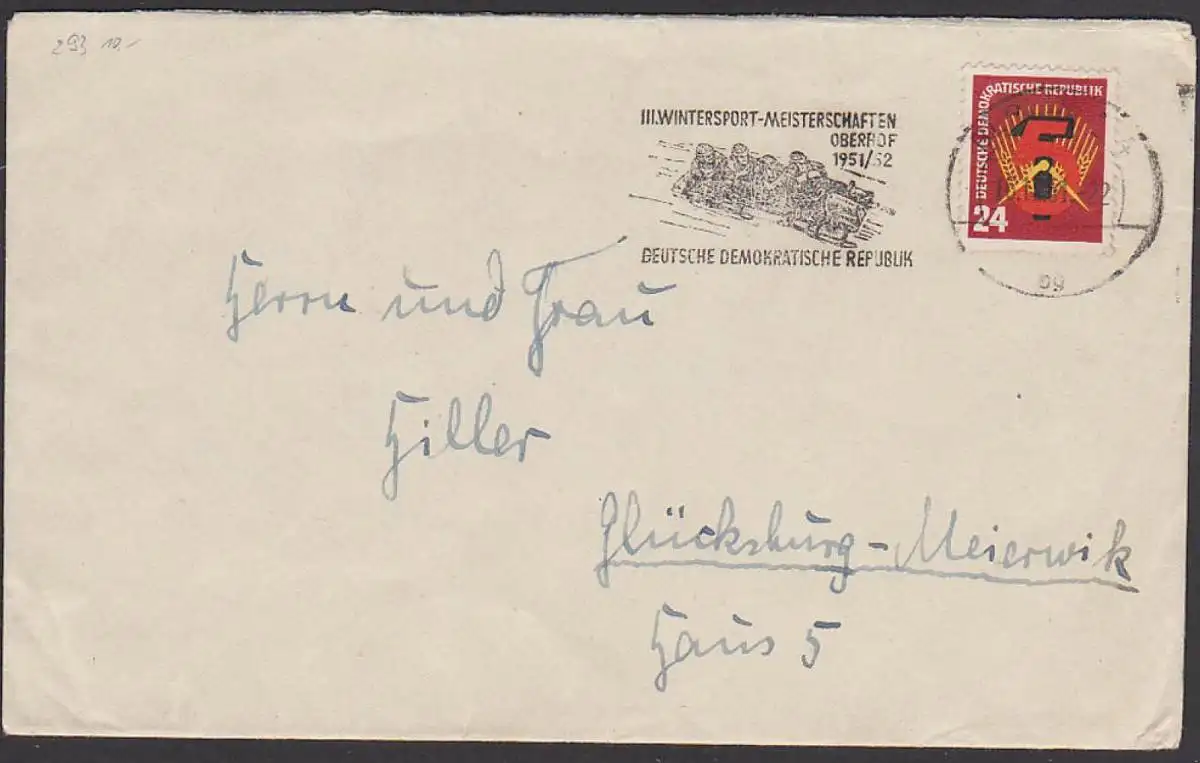 293 10.-
III. WINTERSPORT-MEISTERSCHAFTEN
OBERHOF
1951/52
DEUTSCHE DEMOKRATISCHE REPUBLIK
DEUTSCHE DEMOKRATISCHE REPUBLIK
24
by
Herrn und Frau
Hiller
Glücksburg-Meierwik
Haus 5